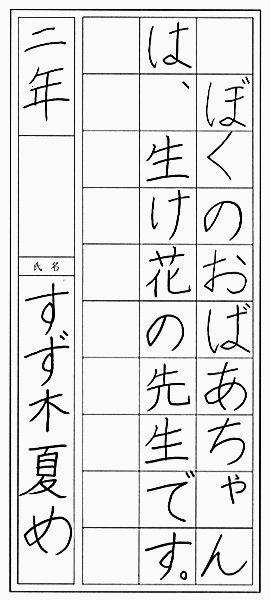 ぼくのおばあちゃん
は、生け花の先生です。
二年
氏名
すず木夏め